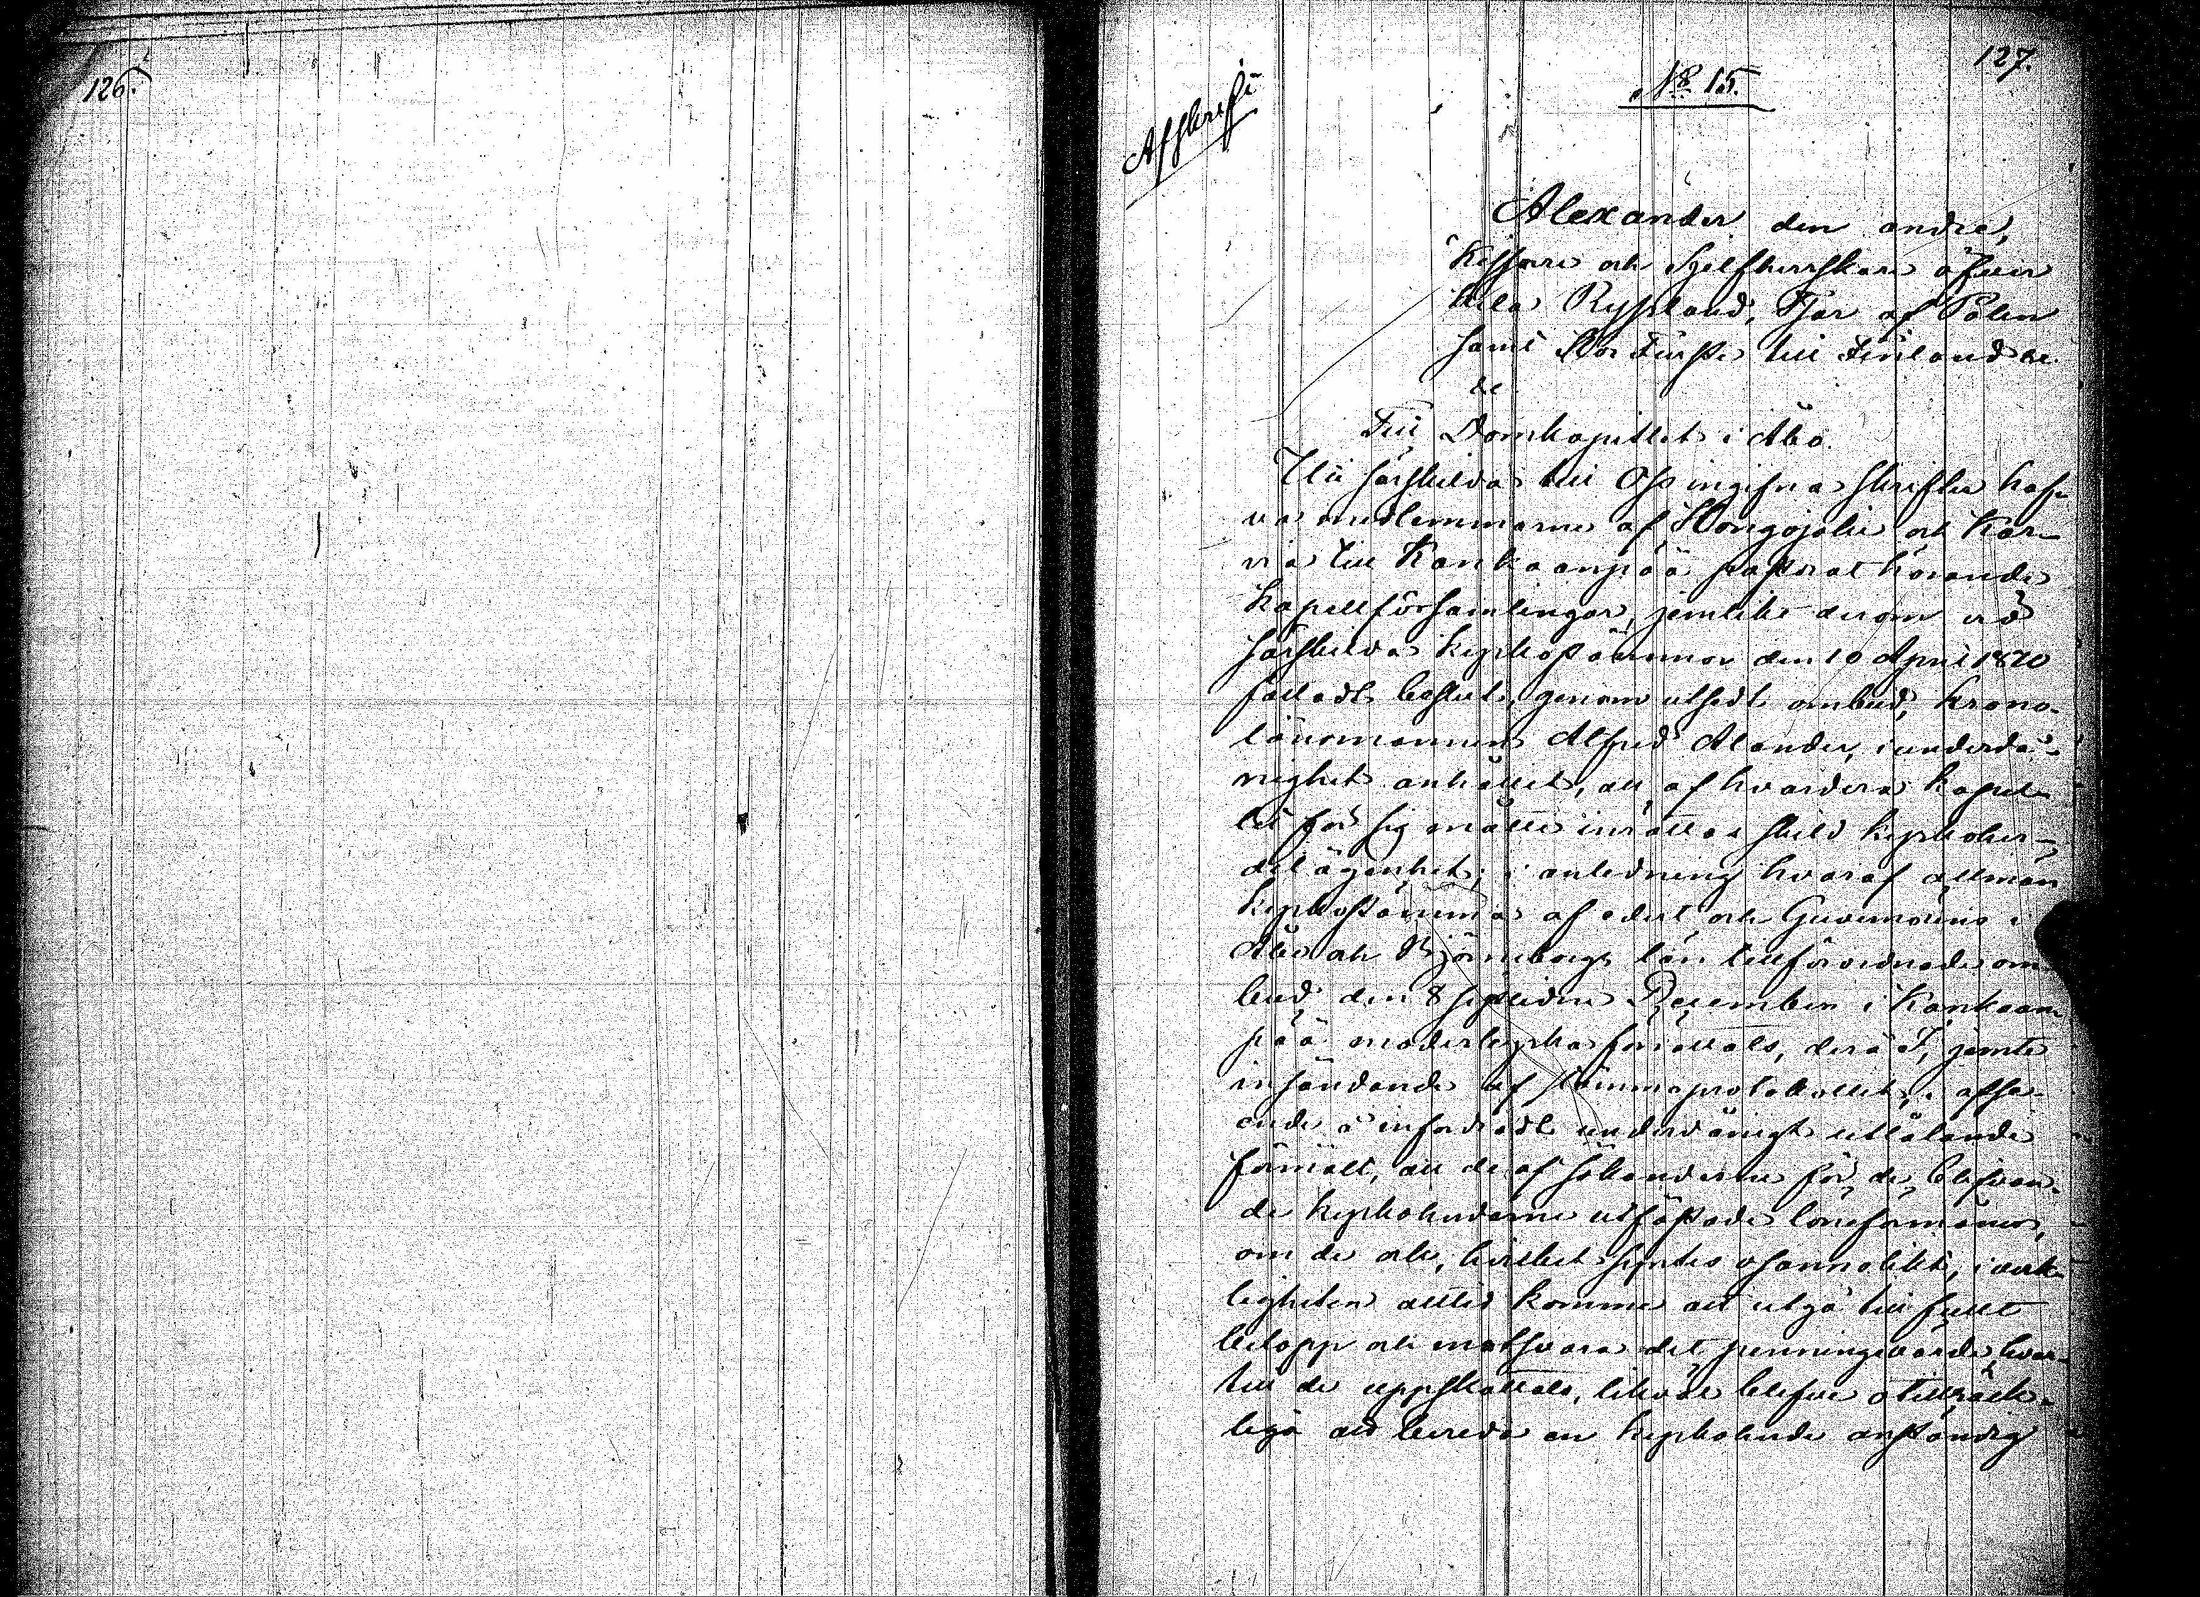 126.
127.
Nº 15.
Afskrift
Alexander den andre,
Kejsare och Sjelfherrskare öfver
hela Ryssland, Tsar af Polen
samt Stor Furste till Finland &c.
&c
Till Domkapitlet i Åbo.
Uti särskilda till Oss ingifna skrifter haf-
va medlemmarne af Hongojoki och Kar-
via till Kankaanpää pastorat hörande
kapellförsamlingar, jemlikt derom vid
särskilda kyrkostämmor den 10 April 1870
fattadt beslut, genom utsedt ombud, krono-
länsmannen Alfred Alander, i underdå-
nighet anhållit, att af hvardera kapel-
let för sig måtte inrättas skild kyrkoher-
delägenhet; i anledning hvaraf allmän
kyrkostämma af edert och Guvernörens i
Åbo och Björneborgs län tillförordnade om-
bud den 8 sistlidne December i Kankaan-
pää moderkyrka förrättats, derå I, jemte
insändande af stämmoprotokollet, i afse-
ende å infordradt underdånigt utlåtande
förmält, att de af sökanderne för de blifvan-
de kyrkoherdarne utfästade löneförmåner,
om de ock, hvilket syntes osannolikt, i verk-
ligheten alltid komme att utgå till fullt
belopp och motsvara det penningevärde, hvar-
till de uppskattats, likväl blefve otillräck-
liga att bereda en kyrkoherde anständig